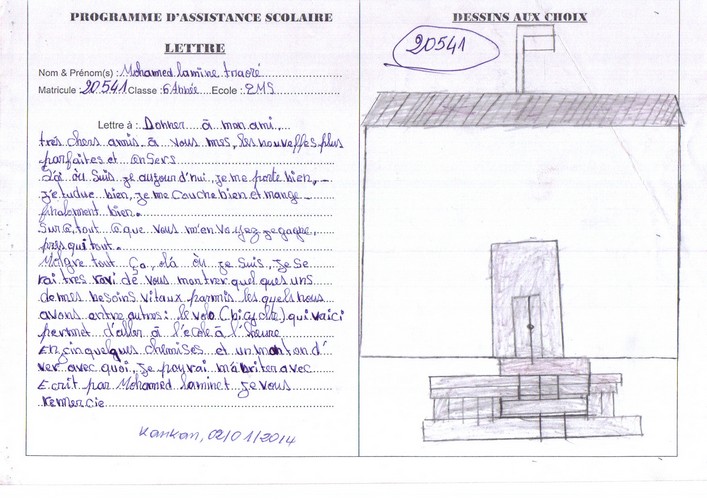 PROGRAMME D'ASSISTANCE SCOLAIRE
LETTRE
Nom & Prénom(s) : Mohamed lamine traoré
Matricule : 20541 Classe : 6 Année Ecole : 2MS
Lettre à : Donner à mon ami
tres chers amis à vous mes, les nouvelles plus
parfaites et
où Suis je aujourd'hui je me porte bien,
j'etudue bien, je me couche bien et mange
finalement bien.
tout que vous m'en voyez je gagne,
pres qui tout.
Malgre tout ça, là où je suis, je se
rai tres ravi de vous montrer quelques uns
de mes besoins vitaux parmis les quels nous
avons entre autres: le velo (bicyclete) qui vaici
permet d'aller à l'ecole à l'heure
En cinquelques chemises et un manton d'
ver avec quoi, je poyrai m'abriter avec
Ecrit par Mohamed laminet je vous
remercie
Kankan, 02/01/2014
DESSINS AUX CHOIX
20541